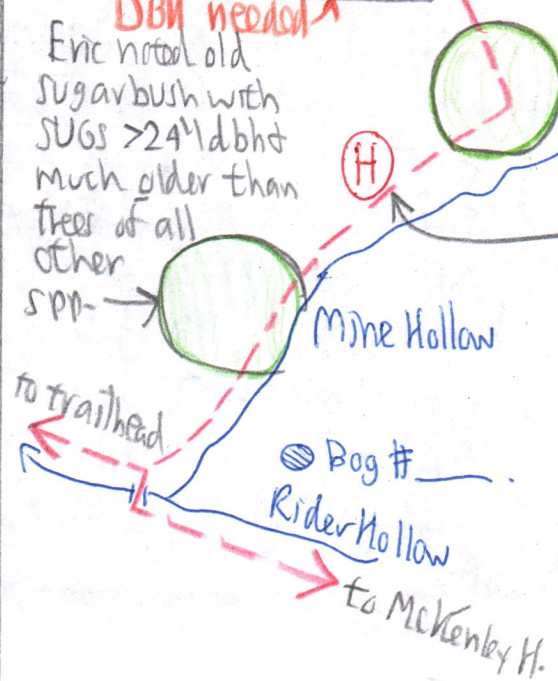 DBH needed
Eric noted old
sugarbush with
SUGS >24" dbh &
much older than
trees of all
other
spp-
H
Mine Hollow
to trailhead
Bog #____.
Rider Hollow
to McKenley H.